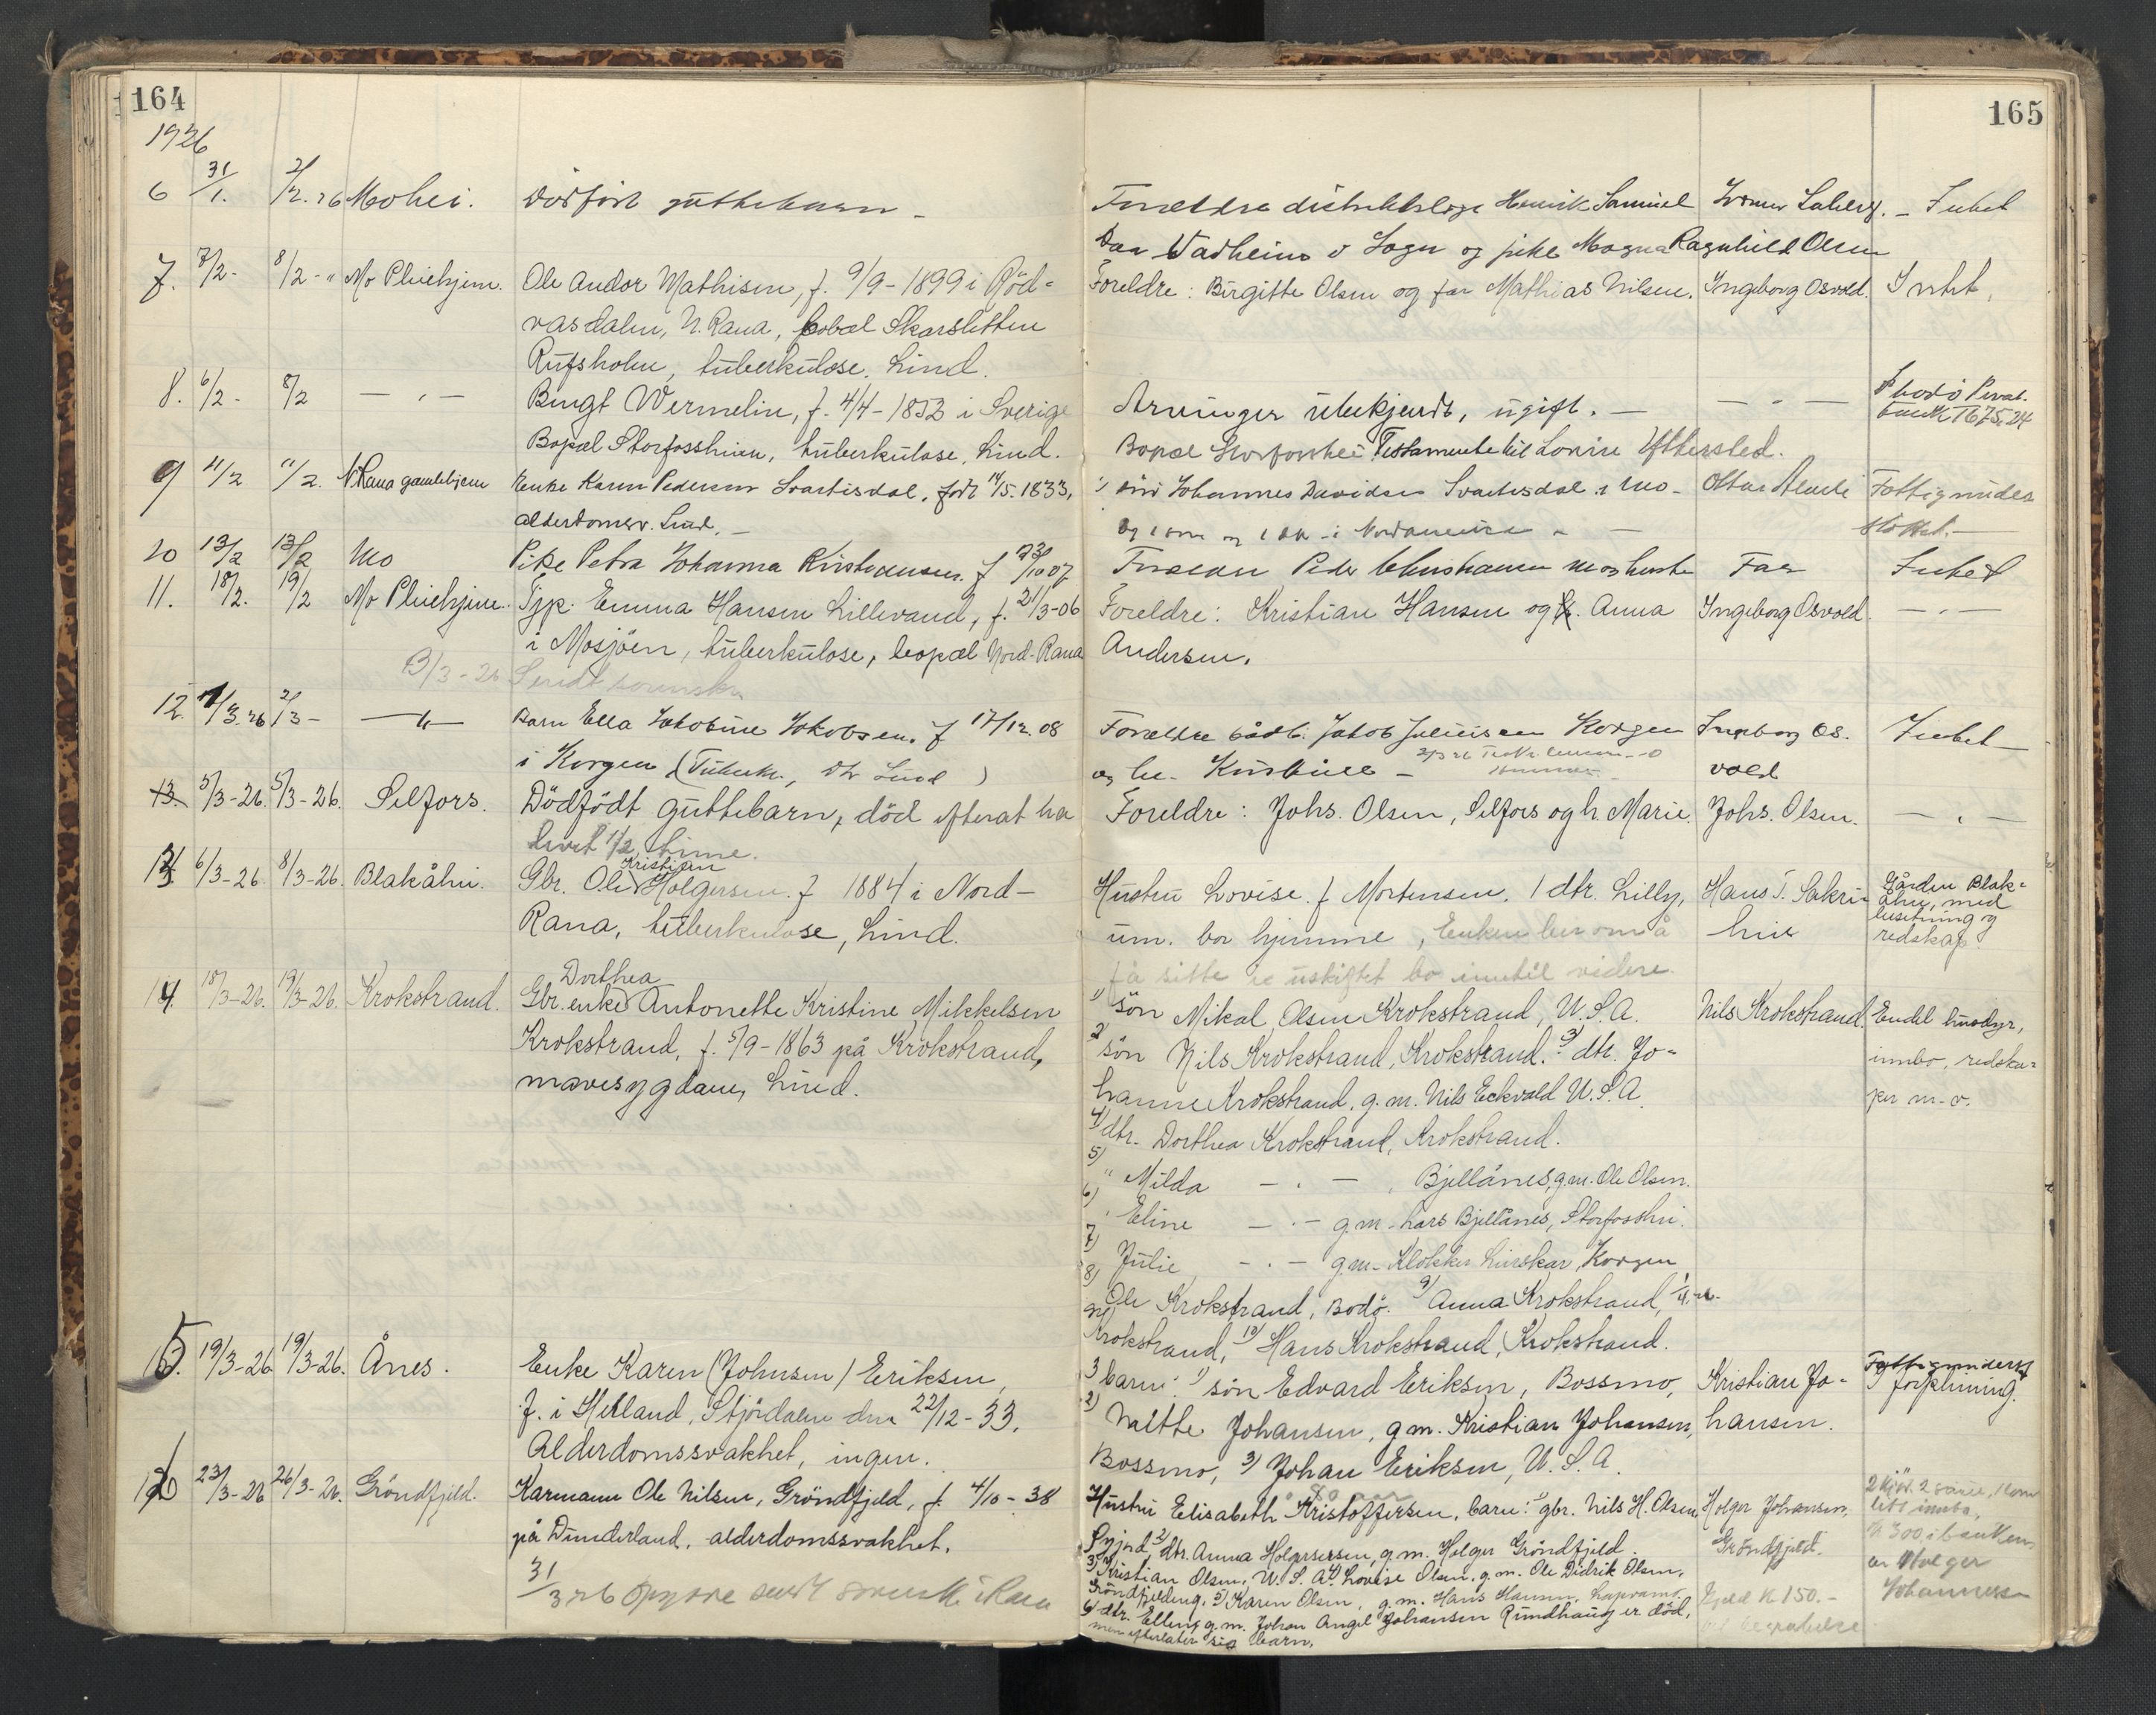 164
165
1926
6 31/1. 2/2. 26 Mohei. Dödfödt guttebarn - Foreldre distriktslæge Henrik Samuel - Intet
Daa Vadheim i Sogn og pike Magna Ragnhild Olsen
7. 7/2- 8/2 - " Mo Pleiehjem. Ole Andor Mathisen, f. 9/9-1899 i Röd- Foreldre: Birgitte Olsen og far Mathias Nilsen. Ingeborg Osvold. Intet.
vasdalen, N. Rana, bopæl Skarsletten
Rufsholm, tuberkulose. Lind.
8. 6/2- 8/2 — " — Bengt Wermelin, f. 4/4-1853 i Sverige Arvinger ubekjendt, ugift. — — " — I Bodö Privat-
bank 1675,24
Bopæl Storfosshein, tuberkulose, Lind. Bopæl Storforshei Testamente til Lovise
9 11/2 11/2. N Rana gamlehjem Enke Karen Pedersen Svartisdal, född 14/5. 1833, 1) sön Johannes Davidsen Svartisdal i Mo - Fattigunder
alderdomsv. Lind. - og 1 sön og 1 dtr - i Nordamerika - stöttet. -
10 13/2 13/2 Mo Pike Petra Johanna Kristiansen. f 23/10 07 Peder Christiansen Far Intet
11. 18/2. 19/2 Mo Pleiehjem. Tjp. Emma Hansen Lillevand, f. 21/3-06 Foreldre: Kristian Hansen og h. Anna Ingeborg Osvold. — " —
i Mosjöen, tuberkulose, bopæl Nord-Rana Andersen.
13/3-26 Sendt
12. 1/3. 26 2/3- — " — Barn Ella Jakobine Jakobsen. f 17/12. 08 Foreldre Jakob Juliussen Korgen Ingeborg Os- Intet
i Korgen (Tuberk., Dr Lind) og h. Kristine - vold
13. 5/3-26. 5/3-26. Selfors. Dödfödt guttebarn, död efterat ha Foreldre: Johs. Olsen, Selfors og h. Marie. Johs. Olsen. — " —
levet 1/2 time.
13. 6/3-26 8/3-26. Blakåhei. Gbr. Ole Kristian Holgersen. f 1884 i Nord- Hustru Lovise. f Mortensen. 1 dtr. Lilly, Hans J. Sakri- Gården Blak-
åhei, med
besetning og
redskap.
Rana, tuberkulose, Lind. um. bor hjemme, Enken ber om å hei
få sitte i uskiftet bo inntil videre.
14. 18/3-26. 19/3-26. Krokstrand. Gbr. enke Dorthea Antonette Kristine Mikkelsen 1) sön Mikal Olsen Krokstrand, U.S.A. Nils Krokstrand. Endel husdyr,
Krokstrand, f. 5/9-1863 på Krokstrand, 2) sön Nils Krokstrand, Krokstrand. 3) dtr. Jo- innbo, redska-
mavesygdom, Lind. hanne Krokstrand, g.m. Nils Eckvold U.S.A. per m.v.
4) dtr. Dorthea Krokstrand, Krokstrand.
5) " Milda — " —, Bjellånes, g.m. Ole Olsen.
6) " Eline — " — g.m. Lars Bjellånes, Storfosshei.
7) Julie — " — g.m. Klokker Luvskar, Korgen
8) Ole Krokstrand, Bodö. 9) Anna Krokstrand,
Krokstrand, 10) Hans Krokstrand, Krokstrand.
15. 19/3-26 19/3-26. Ånes. Enke Karen (Johnsen) Eriksen, 3 barn: 1) sön Edvard Eriksen, Bossmo, Kristian Jo- Fattigunderst
forpleining.
f. i Hegland, Stjördalen den 22/12-33. 2) Mitte Johansen, g.m. Kristian Johansen, hansen.
Alderdomssvakhet, ingen. Bossmo, 3) Johan Eriksen, U.S.A.
16 23/3-26 26/3-26. Gröndfjeld. Kårmann Ole Nilsen, Gröndfjeld, f. 4/10-38 Hustru Elisabeth Kristoffersen, 80 aar barn: 1) gbr. Nils H. Olsen Holger Johansen,
på Dunderland, alderdomssvakhet. 2) dtr. Anna Holgersen, g.m. Holger Gröndfjeld. Gröndfjeld.
3) Kristian Olsen, U.S.A. 4) Lovise Olsen, g.m. Ole Didrik Olsen,
5) Karen Olsen, g.m. Hans Hansen,
6) dtr. Elling g.m. Johan Angel Johansen Rundhaug er död,
men efterlater sig barn.
2 kjör. 2 sauer,
litt innbo,
K 300 i banken
Holger
Johannessen
Gjeld K 150.-
til begravelse
31/3 26 Opgave sendt